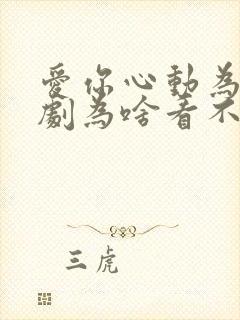 愛你心動為
劇為啥看不
三虎